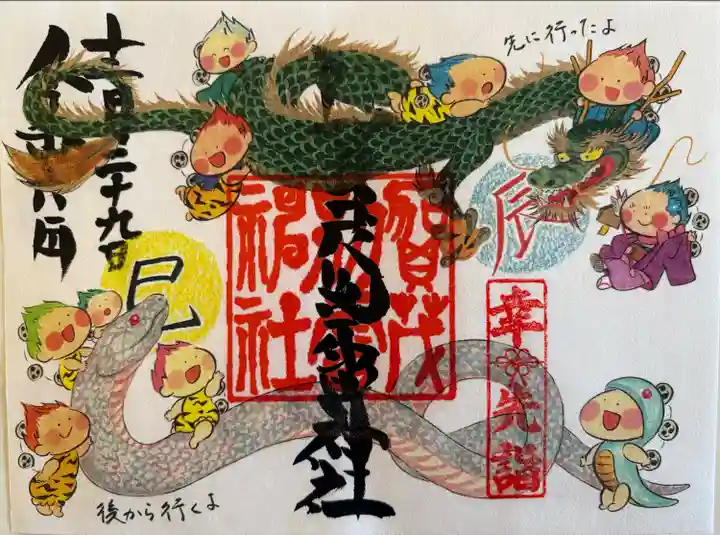 先に行ったよ
十二月二十九日
辰
巳
賀茂
別雷
神社
幸先詣
後から行くよ